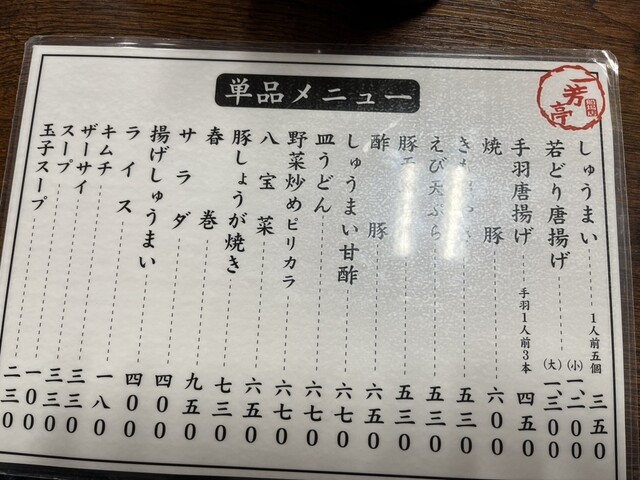 単品メニュー
一芳亭
しゅうまい 1人前五個 三五0
若どり唐揚げ (小)一、二00
(大)一、三00
手羽唐揚げ 手羽1人前3本 四五0
焼豚 六00
五三0
えび天ぷら 五三0
五三0
酢豚 六五0
しゅうまい甘酢 六七0
皿うどん 六七0
野菜炒めピリカラ 六七0
八宝菜 六五0
豚しょうが焼き 七三0
春巻 九五0
サラダ 四00
揚げしゅうまい 四00
ライス 一八0
キムチ 三三0
ザーサイ 三三0
スープ 一00
玉子スープ 二三0